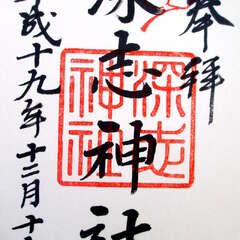 奉拝
深志神社
深志神社
平成十九年十二月十